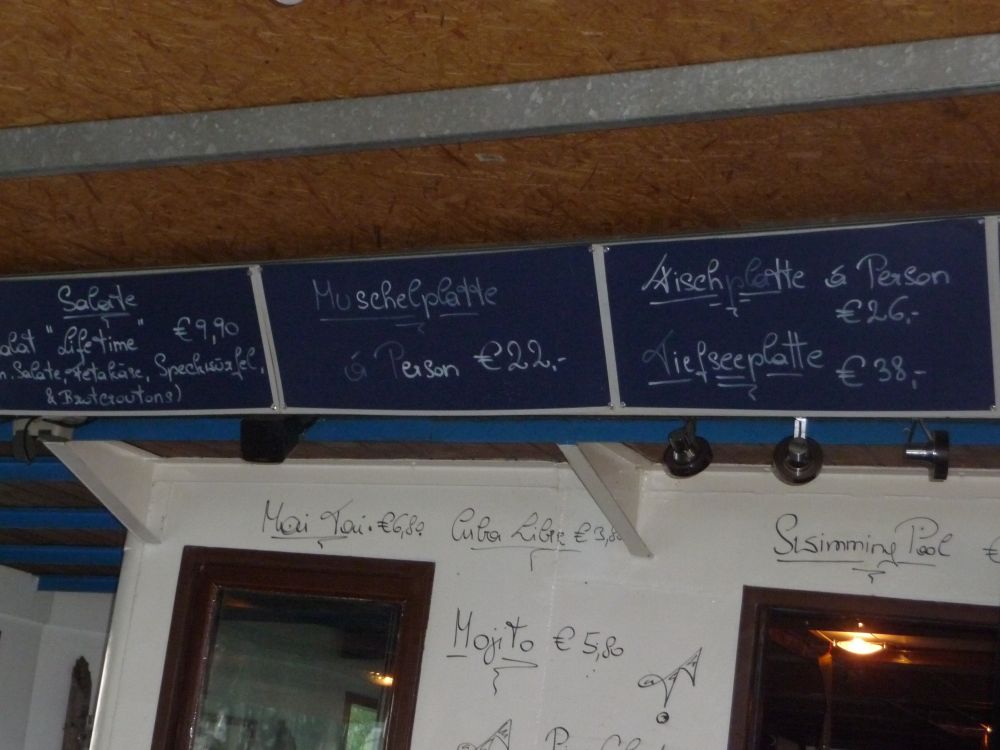 Salate
"Lifetime" €9,90
Salate, Fetakäse, Speckwürfel,
& Brotcroutons)
Muschelplatte
á Person €22,-
Fischplatte á Person
€26,-
Tiefseeplatte €38,-
Mai Tai €6,80
Cuba Libre €3,80
Swimming Pool €
Mojito €5,80